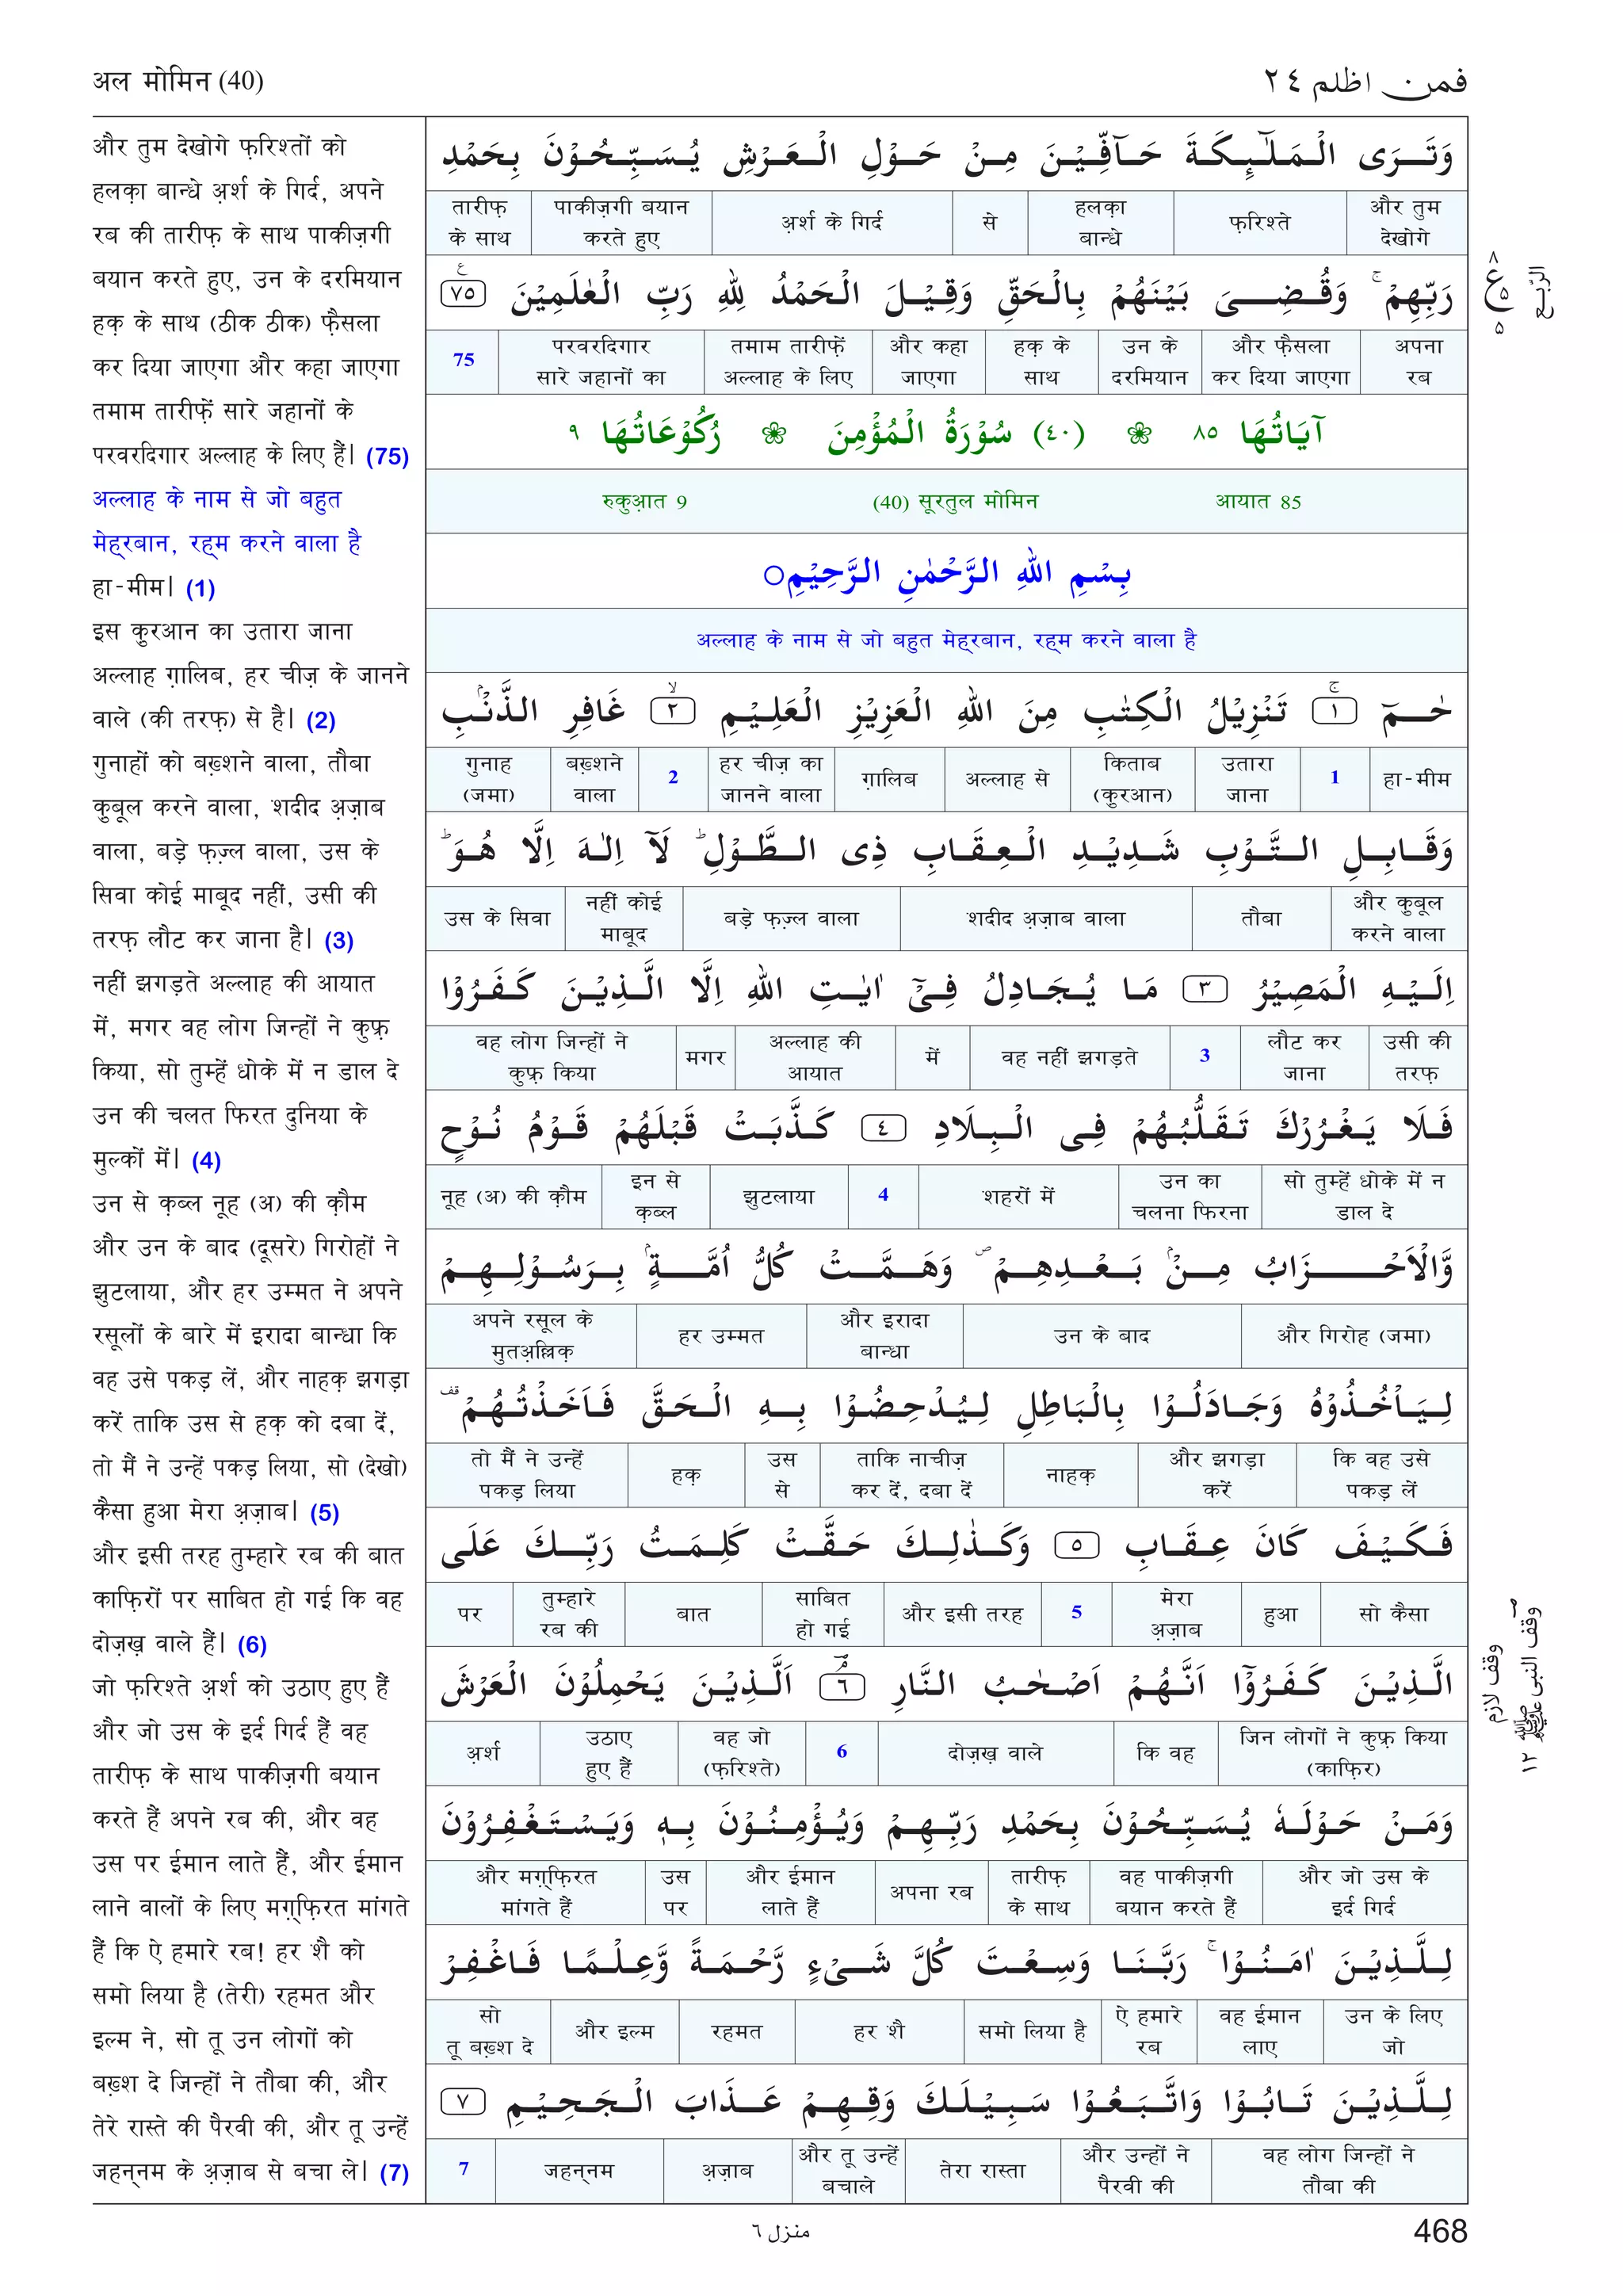 अल मोमिन (40)
فمن اظلم ٢٤
और तुम देखोगे फ़रिश्तों को
हलक़ा बान्धे अ़र्श के गिर्द, अपने
रब की तारीफ़ के साथ पाकीज़गी
बयान करते हुए, उन के दरमियान
हक़ के साथ (ठीक ठीक) फ़ैसला
कर दिया जाएगा और कहा जाएगा
तमाम तारीफ़ें सारे जहानों के
परवरदिगार अल्लाह के लिए हैं| (75)
अल्लाह के नाम से जो बहुत
मेह्रबान, रह्म करने वाला है
हा-मीम| (1)
इस कुरआन का उतारा जाना
अल्लाह ग़ालिब, हर चीज़ के जानने
वाले (की तरफ़) से है| (2)
गुनाहों को बख़्शने वाला, तौबा
कुबूल करने वाला, शदीद अ़ज़ाब
वाला, बड़े फ़ज़्ल वाला, उस के
सिवा कोई माबूद नहीं, उसी की
तरफ़ लौट कर जाना है| (3)
नहीं झगड़ते अल्लाह की आयात
में, मगर वह लोग जिन्हों ने कुफ़्र
किया, सो तुम्हें धोके में न डाल दे
उन की चलत फिरत दुनिया के
मुल्कों में| (4)
उन से क़ब्ल नूह (अ) की क़ौम
और उन के बाद (दूसरे) गिरोहों ने
झुटलाया, और हर उम्मत ने अपने
रसूलों के बारे में इरादा बान्धा कि
वह उसे पकड़ लें, और नाहक़ झगड़ा
करें ताकि उस से हक़ को दबा दें,
तो मैं ने उन्हें पकड़ लिया, सो (देखो)
कैसा हुआ मेरा अ़ज़ाब| (5)
और इसी तरह तुम्हारे रब की बात
काफ़िरों पर साबित हो गई कि वह
दोज़ख़ वाले हैं| (6)
जो फ़रिश्ते अ़र्श को उठाए हुए हैं
और जो उस के इर्द गिर्द हैं वह
तारीफ़ के साथ पाकीज़गी बयान
करते हैं अपने रब की, और वह
उस पर ईमान लाते हैं, और ईमान
लाने वालों के लिए मग़्फ़िरत मांगते
हैं कि ऐ हमारे रब! हर शै को
समो लिया है (तेरी) रहमत और
इल्म ने, सो तू उन लोगों को
बख़्श दे जिन्हों ने तौबा की, और
तेरे रास्ते की पैरवी की, और तू उन्हें
जहन्नम के अ़ज़ाब से बचा ले| (7)
وَتَرَى الْمَلٰٓئِكَةَ حَآفِّيْنَ مِنْ حَوْلِ الْعَرْشِ يُسَبِّحُوْنَ بِحَمْدِ
और तुम देखोगे फ़रिश्ते हलक़ा बान्धे से अ़र्श के गिर्द पाकीज़गी बयान करते हुए तारीफ़ के साथ
رَبِّهِمْ ۚ وَقُضِىَ بَيْنَهُمْ بِالْحَقِّ وَقِيْلَ الْحَمْدُ لِلّٰهِ رَبِّ الْعٰلَمِيْنَ ٧٥
अपना रब और फ़ैसला कर दिया जाएगा उन के दरमियान हक़ के साथ और कहा जाएगा तमाम तारीफ़ें अल्लाह के लिए परवरदिगार सारे जहानों का 75
آيَاتُهَا ٨٥ ❀ (٤٠) سُوْرَةُ الْمُؤْمِنَ ❀ رُكُوْعَاتُهَا ٩
रुकुआ़त 9 (40) सूरतुल मोमिन आयात 85
بِسْمِ اللهِ الرَّحْمٰنِ الرَّحِيْمِ○
अल्लाह के नाम से जो बहुत मेह्रबान, रह्म करने वाला है
حٰمٓ ۚ ١ تَنْزِيْلُ الْكِتٰبِ مِنَ اللهِ الْعَزِيْزِ الْعَلِيْمِ ۙ ٢ غَافِرِ الذَّنْۢبِ
हा-मीम 1 उतारा जाना किताब (कुरआन) अल्लाह से ग़ालिब हर चीज़ का जानने वाला 2 बख़्शने वाला गुनाह (जमा)
وَقَابِلِ التَّوْبِ شَدِيْدِ الْعِقَابِ ذِى الطَّوْلِ ؕ لَآ اِلٰهَ اِلَّا هُوَ ؕ
और कुबूल करने वाला तौबा शदीद अ़ज़ाब वाला बड़े फ़ज़्ल वाला नहीं कोई माबूद उस के सिवा
اِلَيْهِ الْمَصِيْرُ ٣ مَا يُجَادِلُ فِىْٓ اٰيٰتِ اللهِ اِلَّا الَّذِيْنَ كَفَرُوْا
उसी की तरफ़ लौट कर जाना 3 वह नहीं झगड़ते में अल्लाह की आयात मगर वह लोग जिन्हों ने कुफ़्र किया
فَلَا يَغْرُرْكَ تَقَلُّبُهُمْ فِى الْبِلَادِ ٤ كَذَّبَتْ قَبْلَهُمْ قَوْمُ نُوْحٍ
सो तुम्हें धोके में न डाल दे उन का चलना फिरना शहरों में 4 झुटलाया इन से क़ब्ल नूह (अ) की क़ौम
وَّالْاَحْزَابُ مِنْۢ بَعْدِهِمْ ۪ وَهَمَّتْ كُلُّ اُمَّةٍۢ بِرَسُوْلِهِمْ
और गिरोह (जमा) उन के बाद और इरादा बान्धा हर उम्मत अपने रसूल के मुतअ़ल्लिक़
لِيَاْخُذُوْهُ وَجَادَلُوْا بِالْبَاطِلِ لِيُدْحِضُوْا بِهِ الْحَقَّ فَاَخَذْتُهُمْ ۫
कि वह उसे पकड़ लें और झगड़ा करें नाहक़ ताकि नाचीज़ कर दें, दबा दें उस से हक़ तो मैं ने उन्हें पकड़ लिया
فَكَيْفَ كَانَ عِقَابِ ٥ وَكَذٰلِكَ حَقَّتْ كَلِمَتُ رَبِّكَ عَلَى
सो कैसा हुआ मेरा अ़ज़ाब 5 और इसी तरह साबित हो गई बात तुम्हारे रब की पर
الَّذِيْنَ كَفَرُوْٓا اَنَّهُمْ اَصْحٰبُ النَّارِ ۘ ٦ اَلَّذِيْنَ يَحْمِلُوْنَ الْعَرْشَ
जिन लोगों ने कुफ़्र किया (काफ़िर) कि वह दोज़ख़ वाले 6 वह जो (फ़रिश्ते) उठाए हुए हैं अ़र्श
وَمَنْ حَوْلَهٗ يُسَبِّحُوْنَ بِحَمْدِ رَبِّهِمْ وَيُؤْمِنُوْنَ بِهٖ وَيَسْتَغْفِرُوْنَ
और जो उस के इर्द गिर्द वह पाकीज़गी बयान करते हैं तारीफ़ के साथ अपना रब और ईमान लाते हैं उस पर और मग़्फ़िरत मांगते हैं
لِلَّذِيْنَ اٰمَنُوْا ۚ رَبَّنَا وَسِعْتَ كُلَّ شَىْءٍ رَّحْمَةً وَّعِلْمًا فَاغْفِرْ
उन के लिए जो वह ईमान लाए ऐ हमारे रब समो लिया है हर शै रहमत और इल्म सो तू बख़्श दे
لِلَّذِيْنَ تَابُوْا وَاتَّبَعُوْا سَبِيْلَكَ وَقِهِمْ عَذَابَ الْجَحِيْمِ ٧
वह लोग जिन्हों ने तौबा की और उन्हों ने पैरवी की तेरा रास्ता और तू उन्हें बचाले अ़ज़ाब जहन्नम 7
ع ٨ ٥ ٥
الرّبع
وقف لازم
وقف النبی ﷺ ١٢
منزل ٦
468